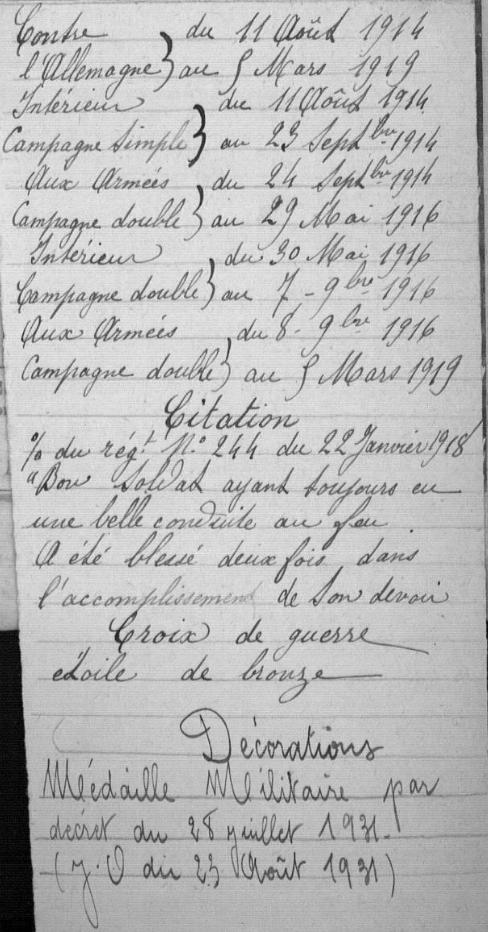 Contre } du 11 Août 1914
l'Allemagne } au 5 Mars 1919
Intérieur } du 11 Août 1914
Campagne simple } au 23 Septbre 1914
Aux Armées } du 24 Septbre 1914
Campagne double } au 29 Mai 1916
Intérieur } du 30 Mai 1916
Campagne double } au 7 - 9bre 1916
Aux Armées } du 8 - 9bre 1916
Campagne double } au 5 Mars 1919
Citation
% du régt. No 244 du 22 Janvier 1918
"Bon soldat ayant toujours eu
une belle conduite au feu.
A été blessé deux fois dans
l'accomplissement de son devoir
Croix de guerre
étoile de bronze
Décorations
Médaille Militaire par
décret du 28 juillet 1931.
(J.O du 23 Août 1931)